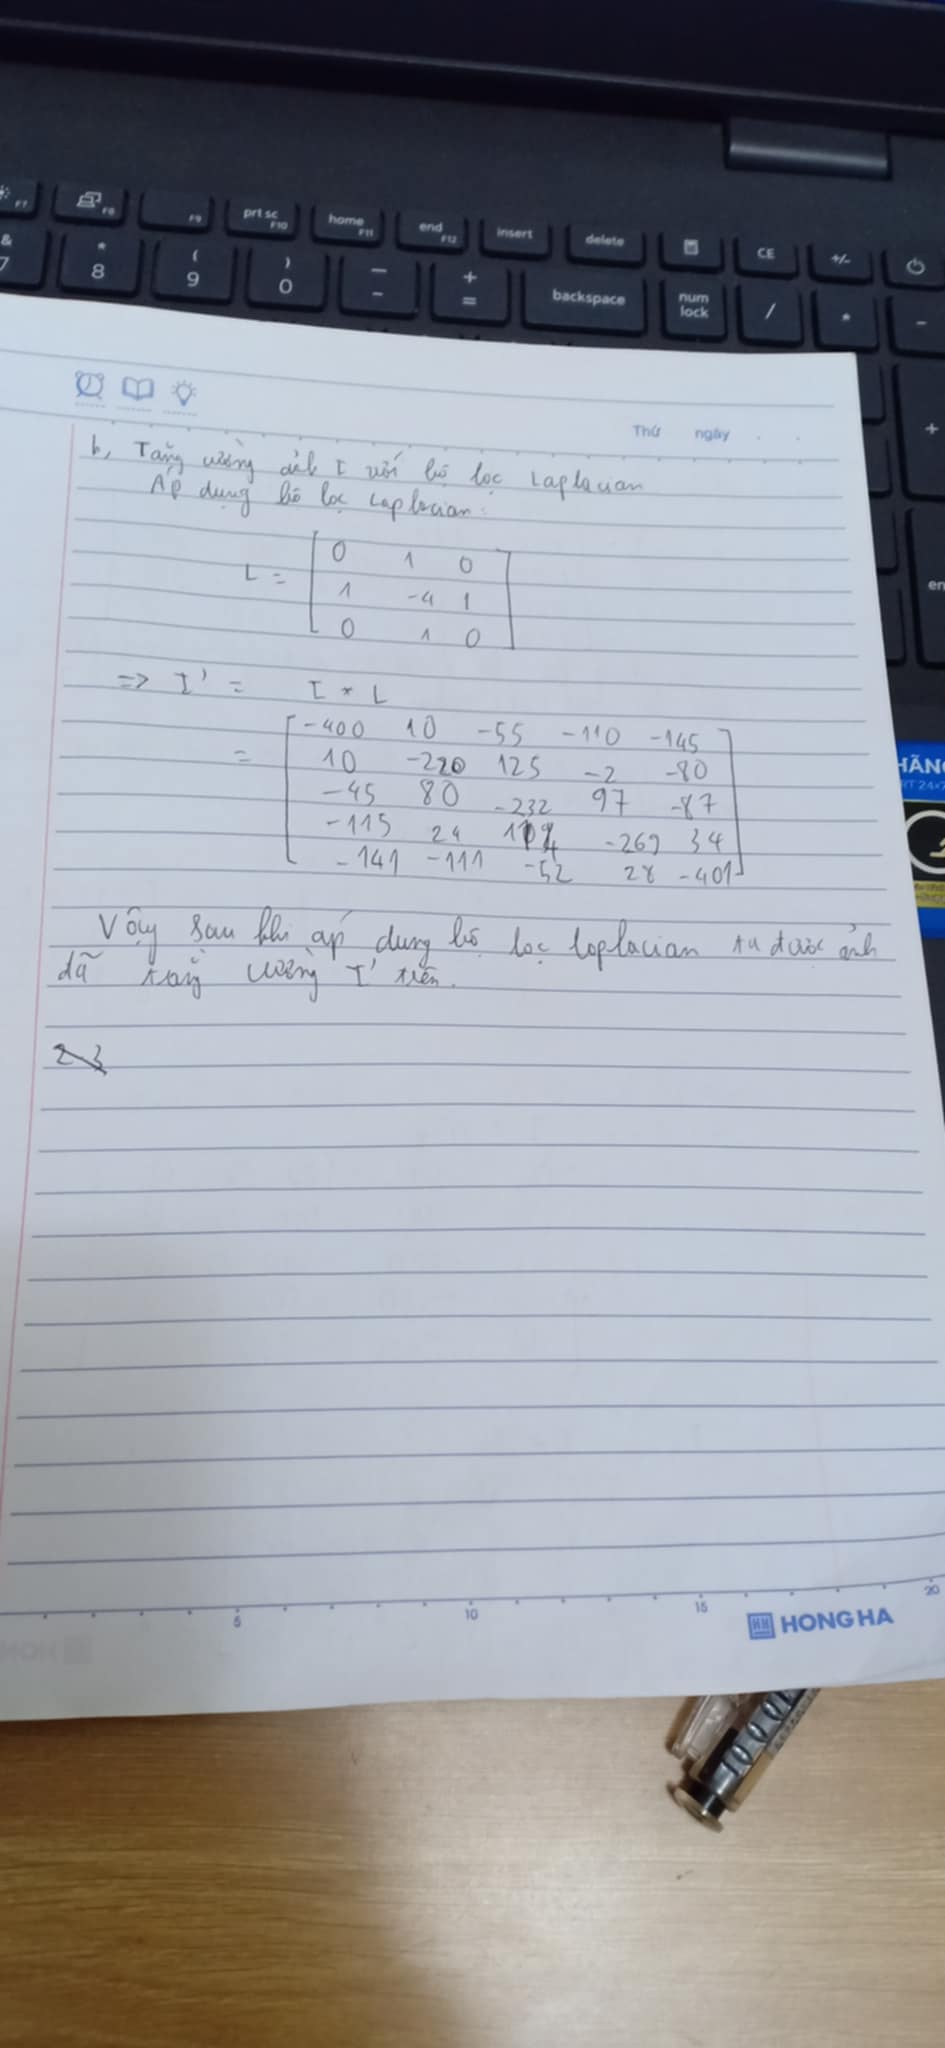 F7 F8 F9 prt sc F10 home F11 end F12 insert delete CE +/-
& 7 * 8 ( 9 ) 0 — - + = backspace num lock / * -
+
Thứ ngày
b, Tăng cường ảnh I với bộ lọc Laplacian
Áp dụng bộ lọc Laplacian:
L = 0 1 0
1 -4 1
0 1 0
=> I' = I * L
= -400 10 -55 -110 -145
10 -220 125 -2 -80
-45 80 -232 97 -87
-115 24 -269 34
-141 -111 -52 28 -401
Vậy sau khi áp dụng bộ lọc loplacian ta được ảnh
đã tăng cường I' trên.
HÃNG
5 10 15 20
HONG HA